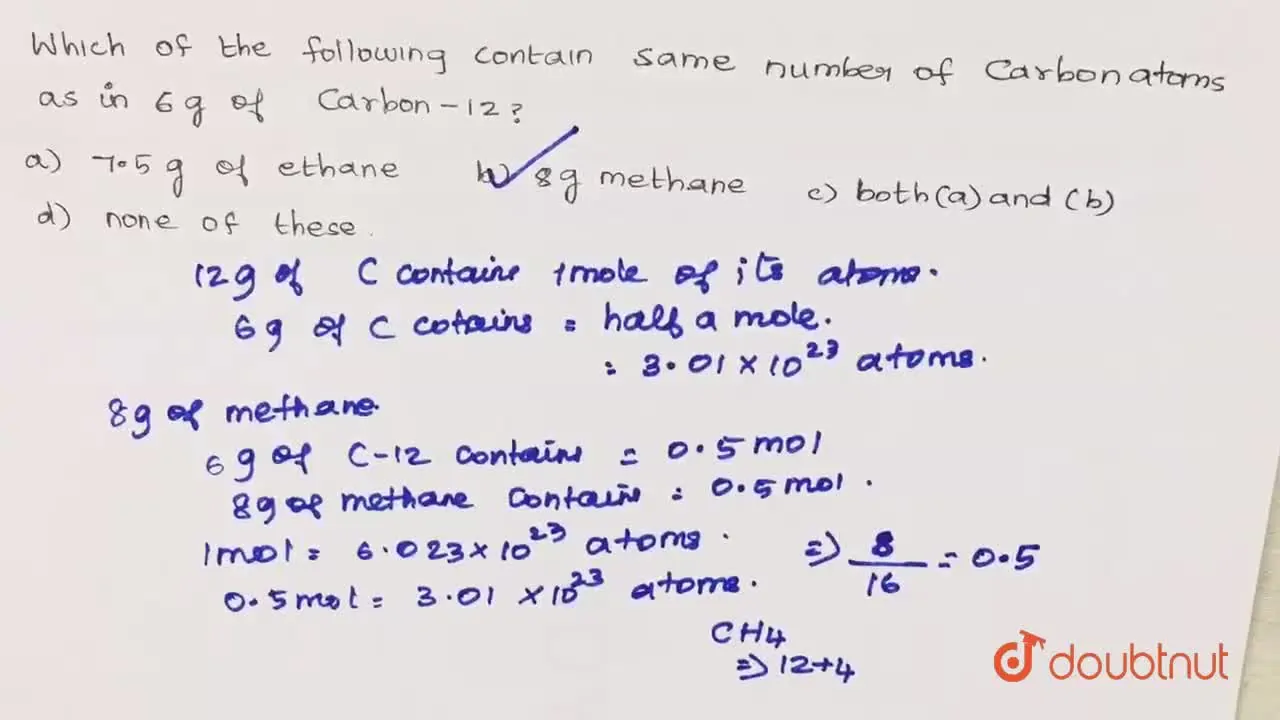 Which of the following contain same number of Carbon atoms
as in 6 g of Carbon-12?
a) 7.5 g of ethane b) 8g methane c) both (a) and (b)
d) none of these.
12g of C contains 1 mole of its atoms.
6g of C cotains = half a mole.
= 3.01 × 10²³ atoms.
8g of methane
6 g of C-12 contains = 0.5 mol
8g of methane contains = 0.5 mol.
1 mol = 6.023 × 10²³ atoms. ⇒ 8/16 = 0.5
0.5 mol = 3.01 × 10²³ atoms.
CH4
⇒ 12+4
doubtnut